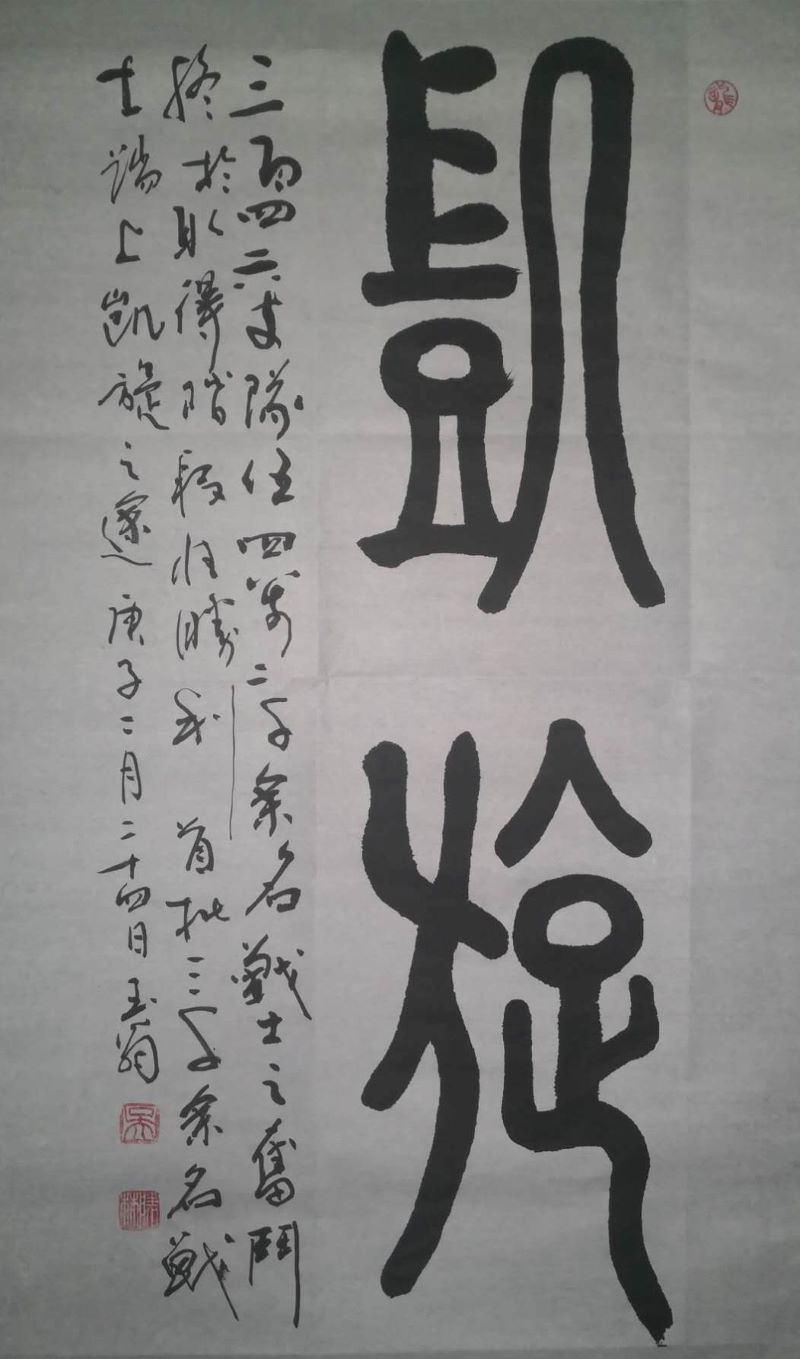 凱旋
三百四六支隊伍四萬二千余名戰士之奮鬥
終於取得階段性勝利 首批三千余名戰
士踏上凱旋之途 庚子二月二十四日 玉翁